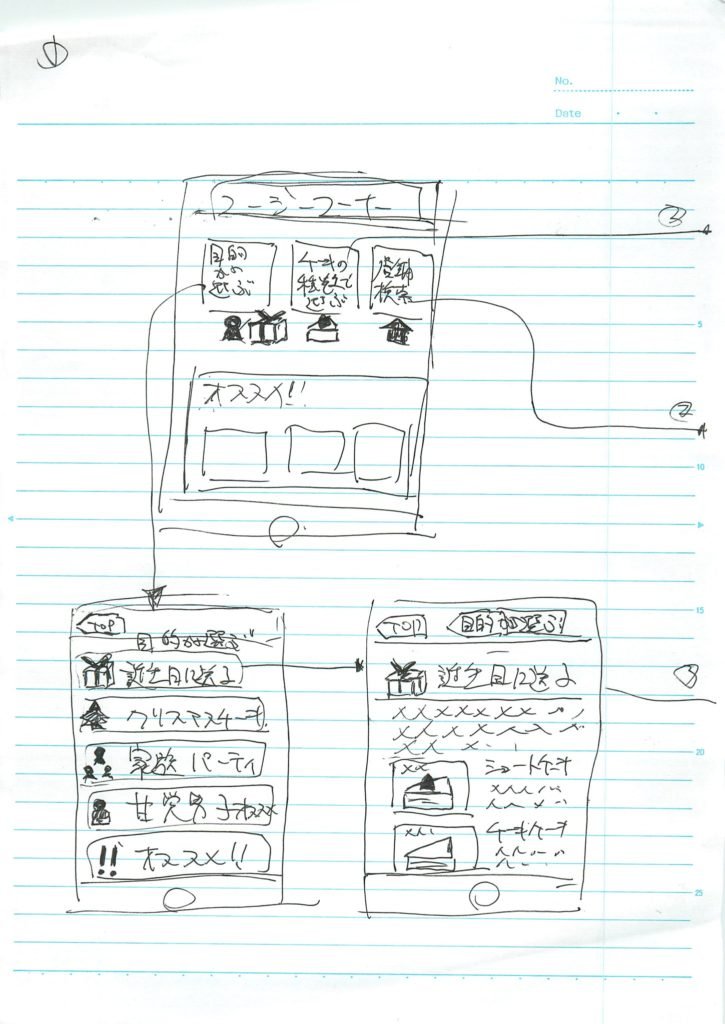 ①
No.
Date
コージーコーナー
目的
から
選ぶ
ケーキの
種類で
選ぶ
店舗
検索
③
②
オススメ!!
5
10
15
TOP
目的から選ぶ
誕生日に送る
クリスマスケーキ
家族パーティ
甘党男子オススメ
オススメ!!
TOP
目的から選ぶ
誕生日に送る
xxxxxxx
xx
ショートケーキ
xx
ケーキケーキ
20
25